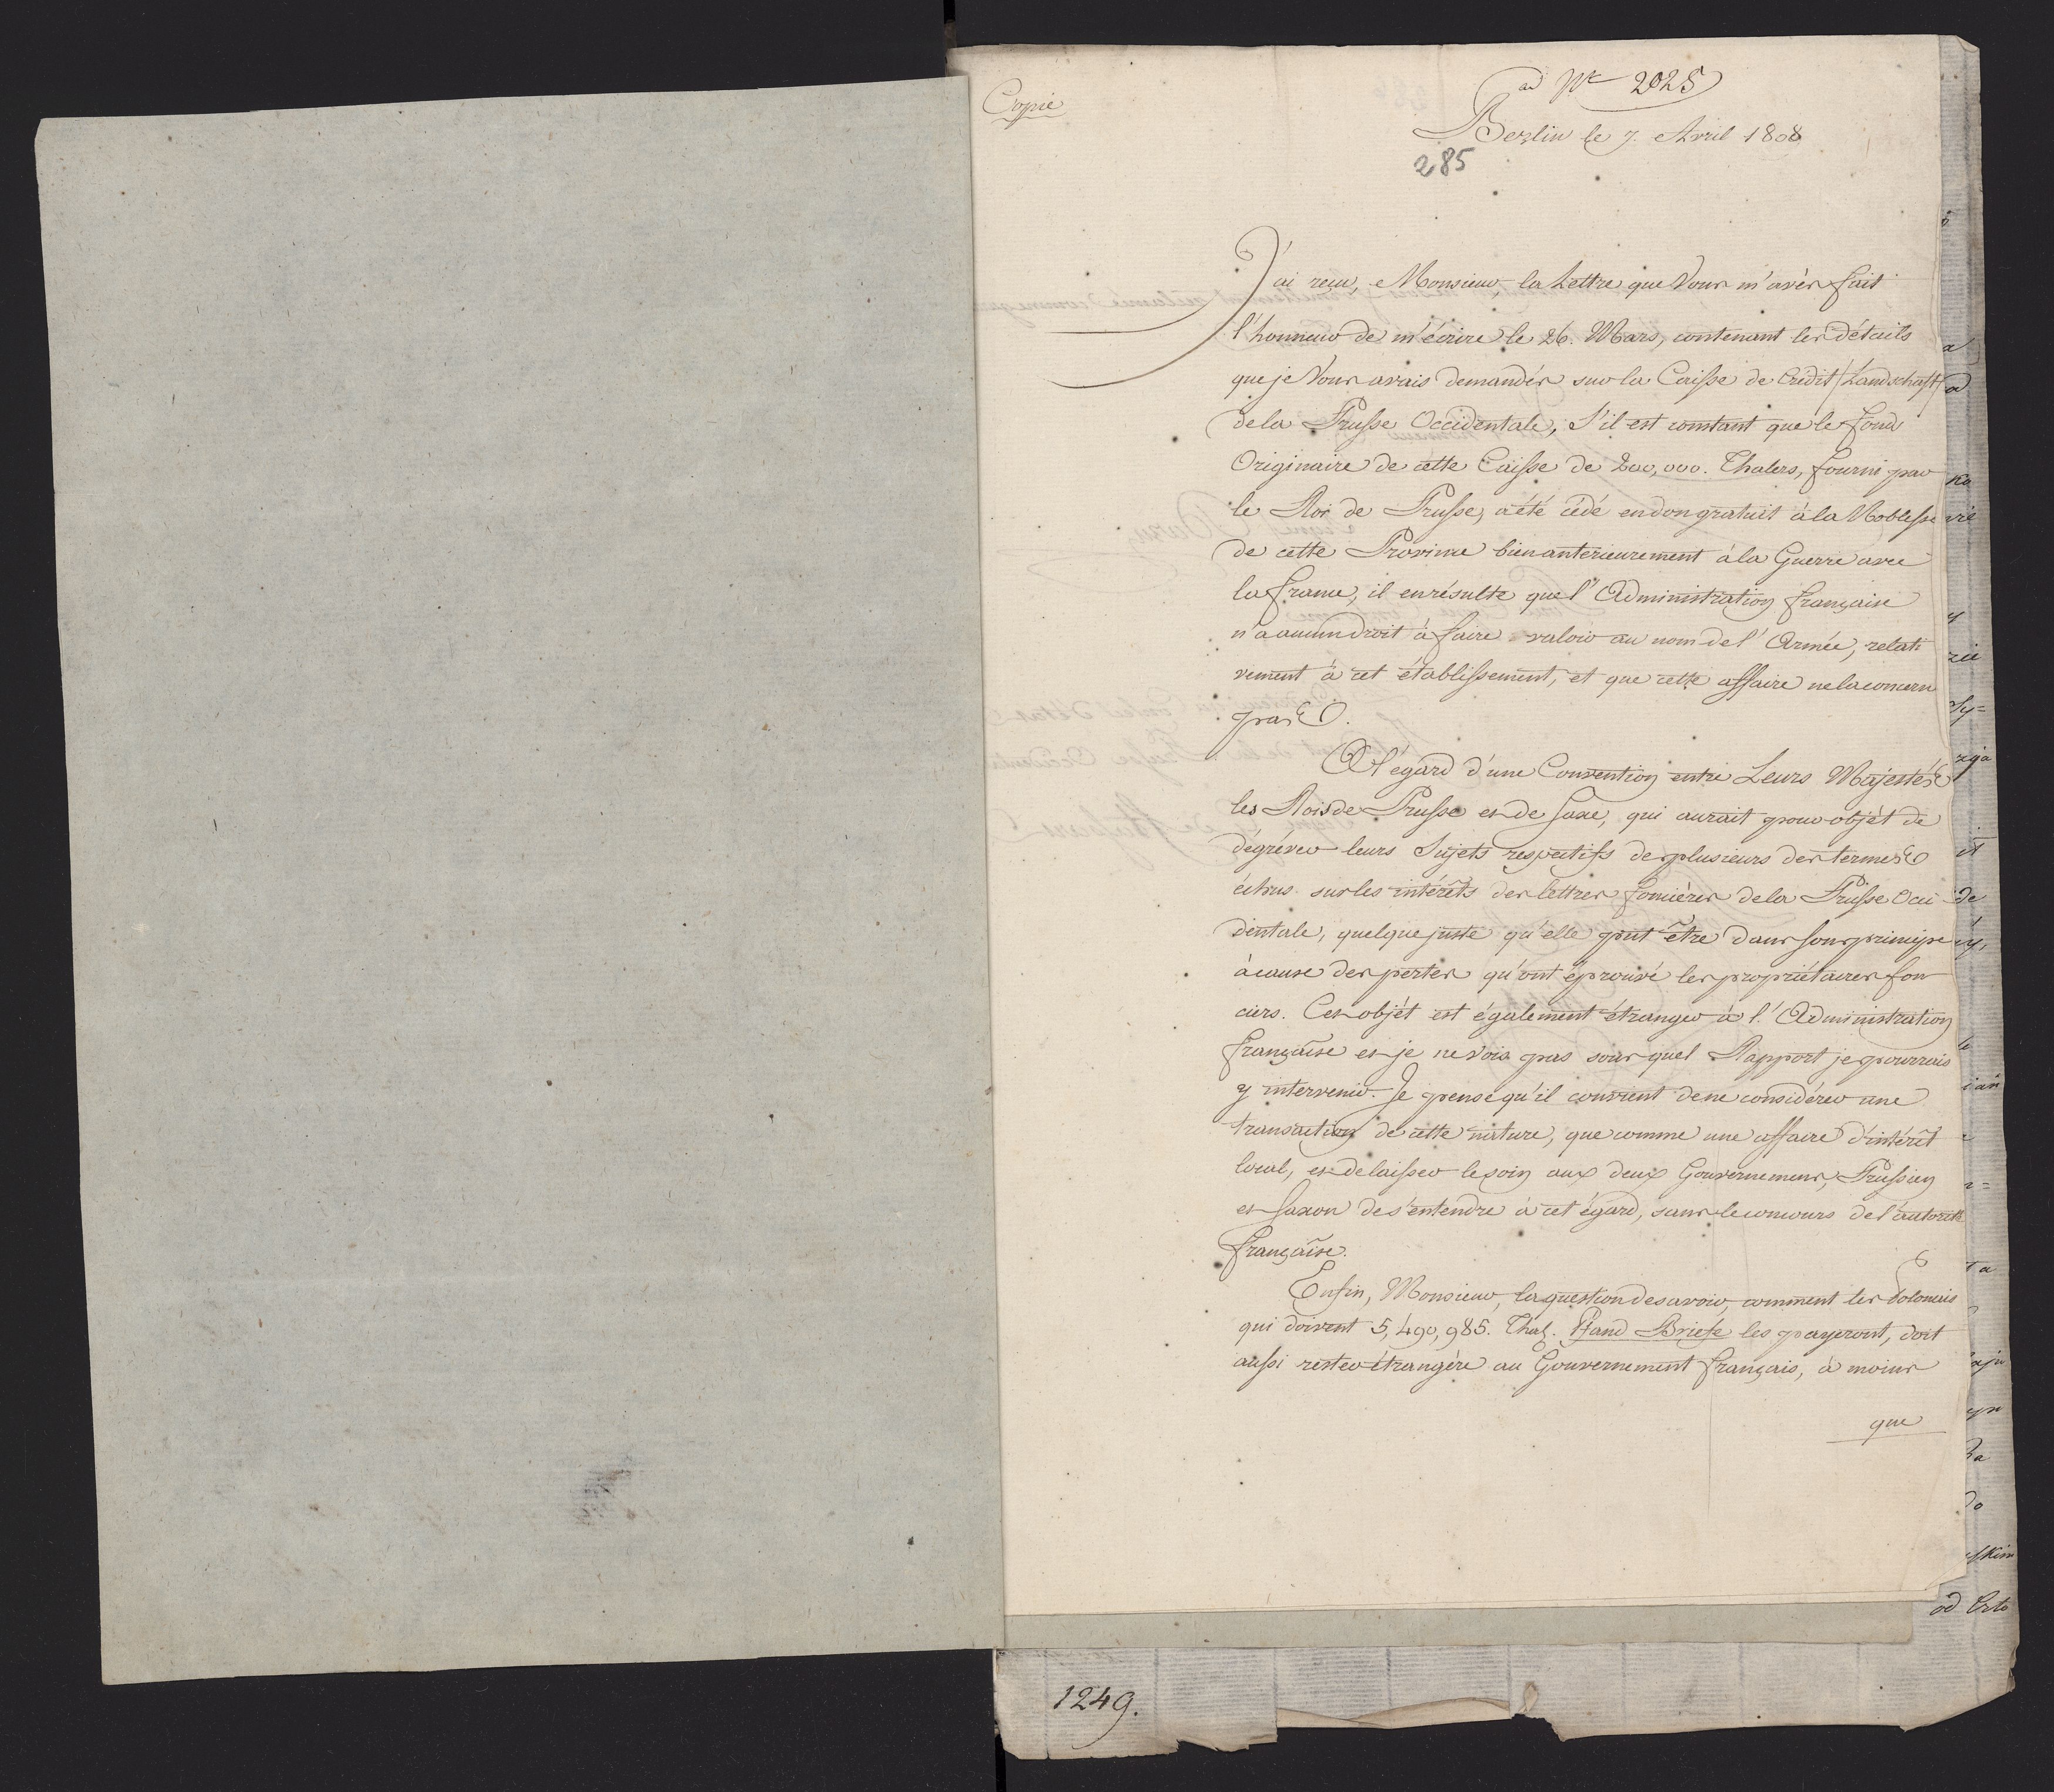 Copie
ad Nr 2025
Berlin le 7. Avril 1808
285
J'ai reçu, Monsieur, la Lettre que Vous m'avés fait
l'honneur de m'écrire le 26. Mars, contenant les détails
que je Vous avais demandés sur la Caisse de Crédit /:Landschaft:/
de la Prusse Occidentale, S'il est constant que le fond
Originaire de cette Caisse de 200,000. Thalers, fourni par
le Roi de Prusse, a été cédé en don gratuit à la Noblesse
de cette Province bien antérieurement à la Guerre avec
la france, il en résulte que l'Administration française
n'a aucun droit à faire valoir au nom de l'Armée, relati
vement à cet établissement, et que cette affaire ne la concern
pas.
A l'égard d'une Convention entre Leurs Majestés
les Rois de Prusse et de Saxe, qui aurait pour objét de
dégréver leurs Sujets respectifs de plusieurs des termes
échus sur les intérêts des lettres foncières de la Prusse Occi
dentale, quelque juste qu'elle put être dans son principe
à cause des pertes qu'ont éprouvé les propriétaires fon
ciers. Cet objét est également étranger à l'Administration
française et je ne vois pas sous quel Rapport je pourrais
y intervenir. Je pense qu'il convient de ne considérer une
transaction de cette nature, que comme une affaire d'intérêt
local, et de laisser le soin aux deux Gouvernemens, Prussien
et Saxon de s'entendre à cet égard, sans le concours de l'autorité
française.
Enfin, Monsieur, la question de savoir, comment les Polonais
qui doivent 5,490,985. Thal. Pfand Briefe les payeront, doit
aussi rester étrangère au Gouvernement français, à moins
que
1249.